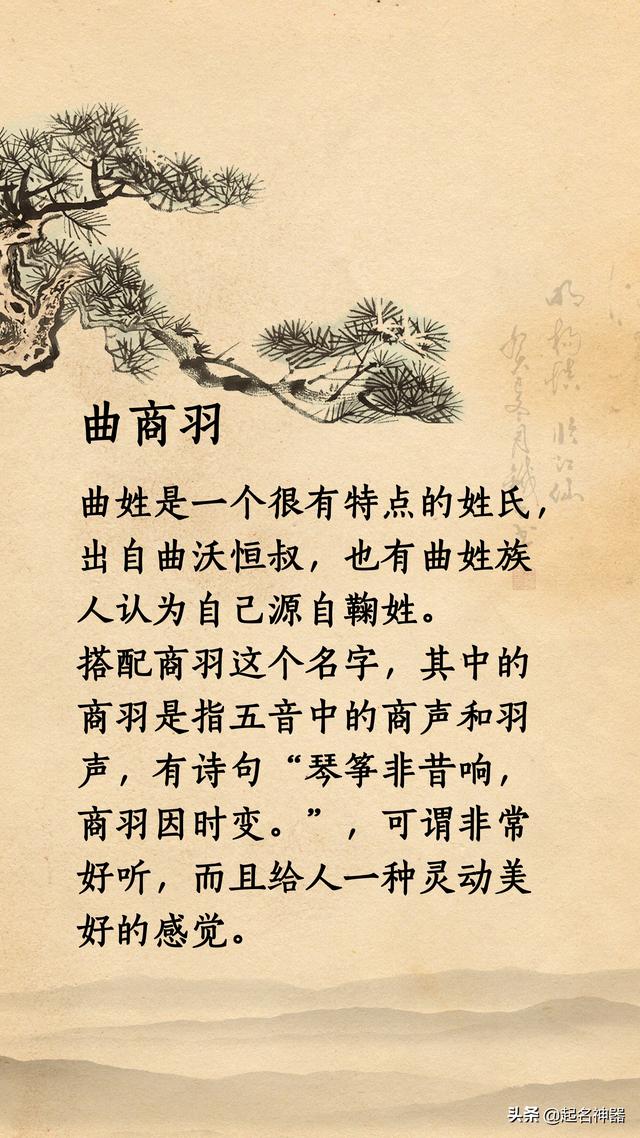 曲商羽
曲姓是一个很有特点的姓氏，
出自曲沃恒叔，也有曲姓族
人认为自己源自鞠姓。
搭配商羽这个名字，其中的
商羽是指五音中的商声和羽
声，有诗句“琴筝非昔响，
商羽因时变。”，可谓非常
好听，而且给人一种灵动美
好的感觉。
头条 @起名神器